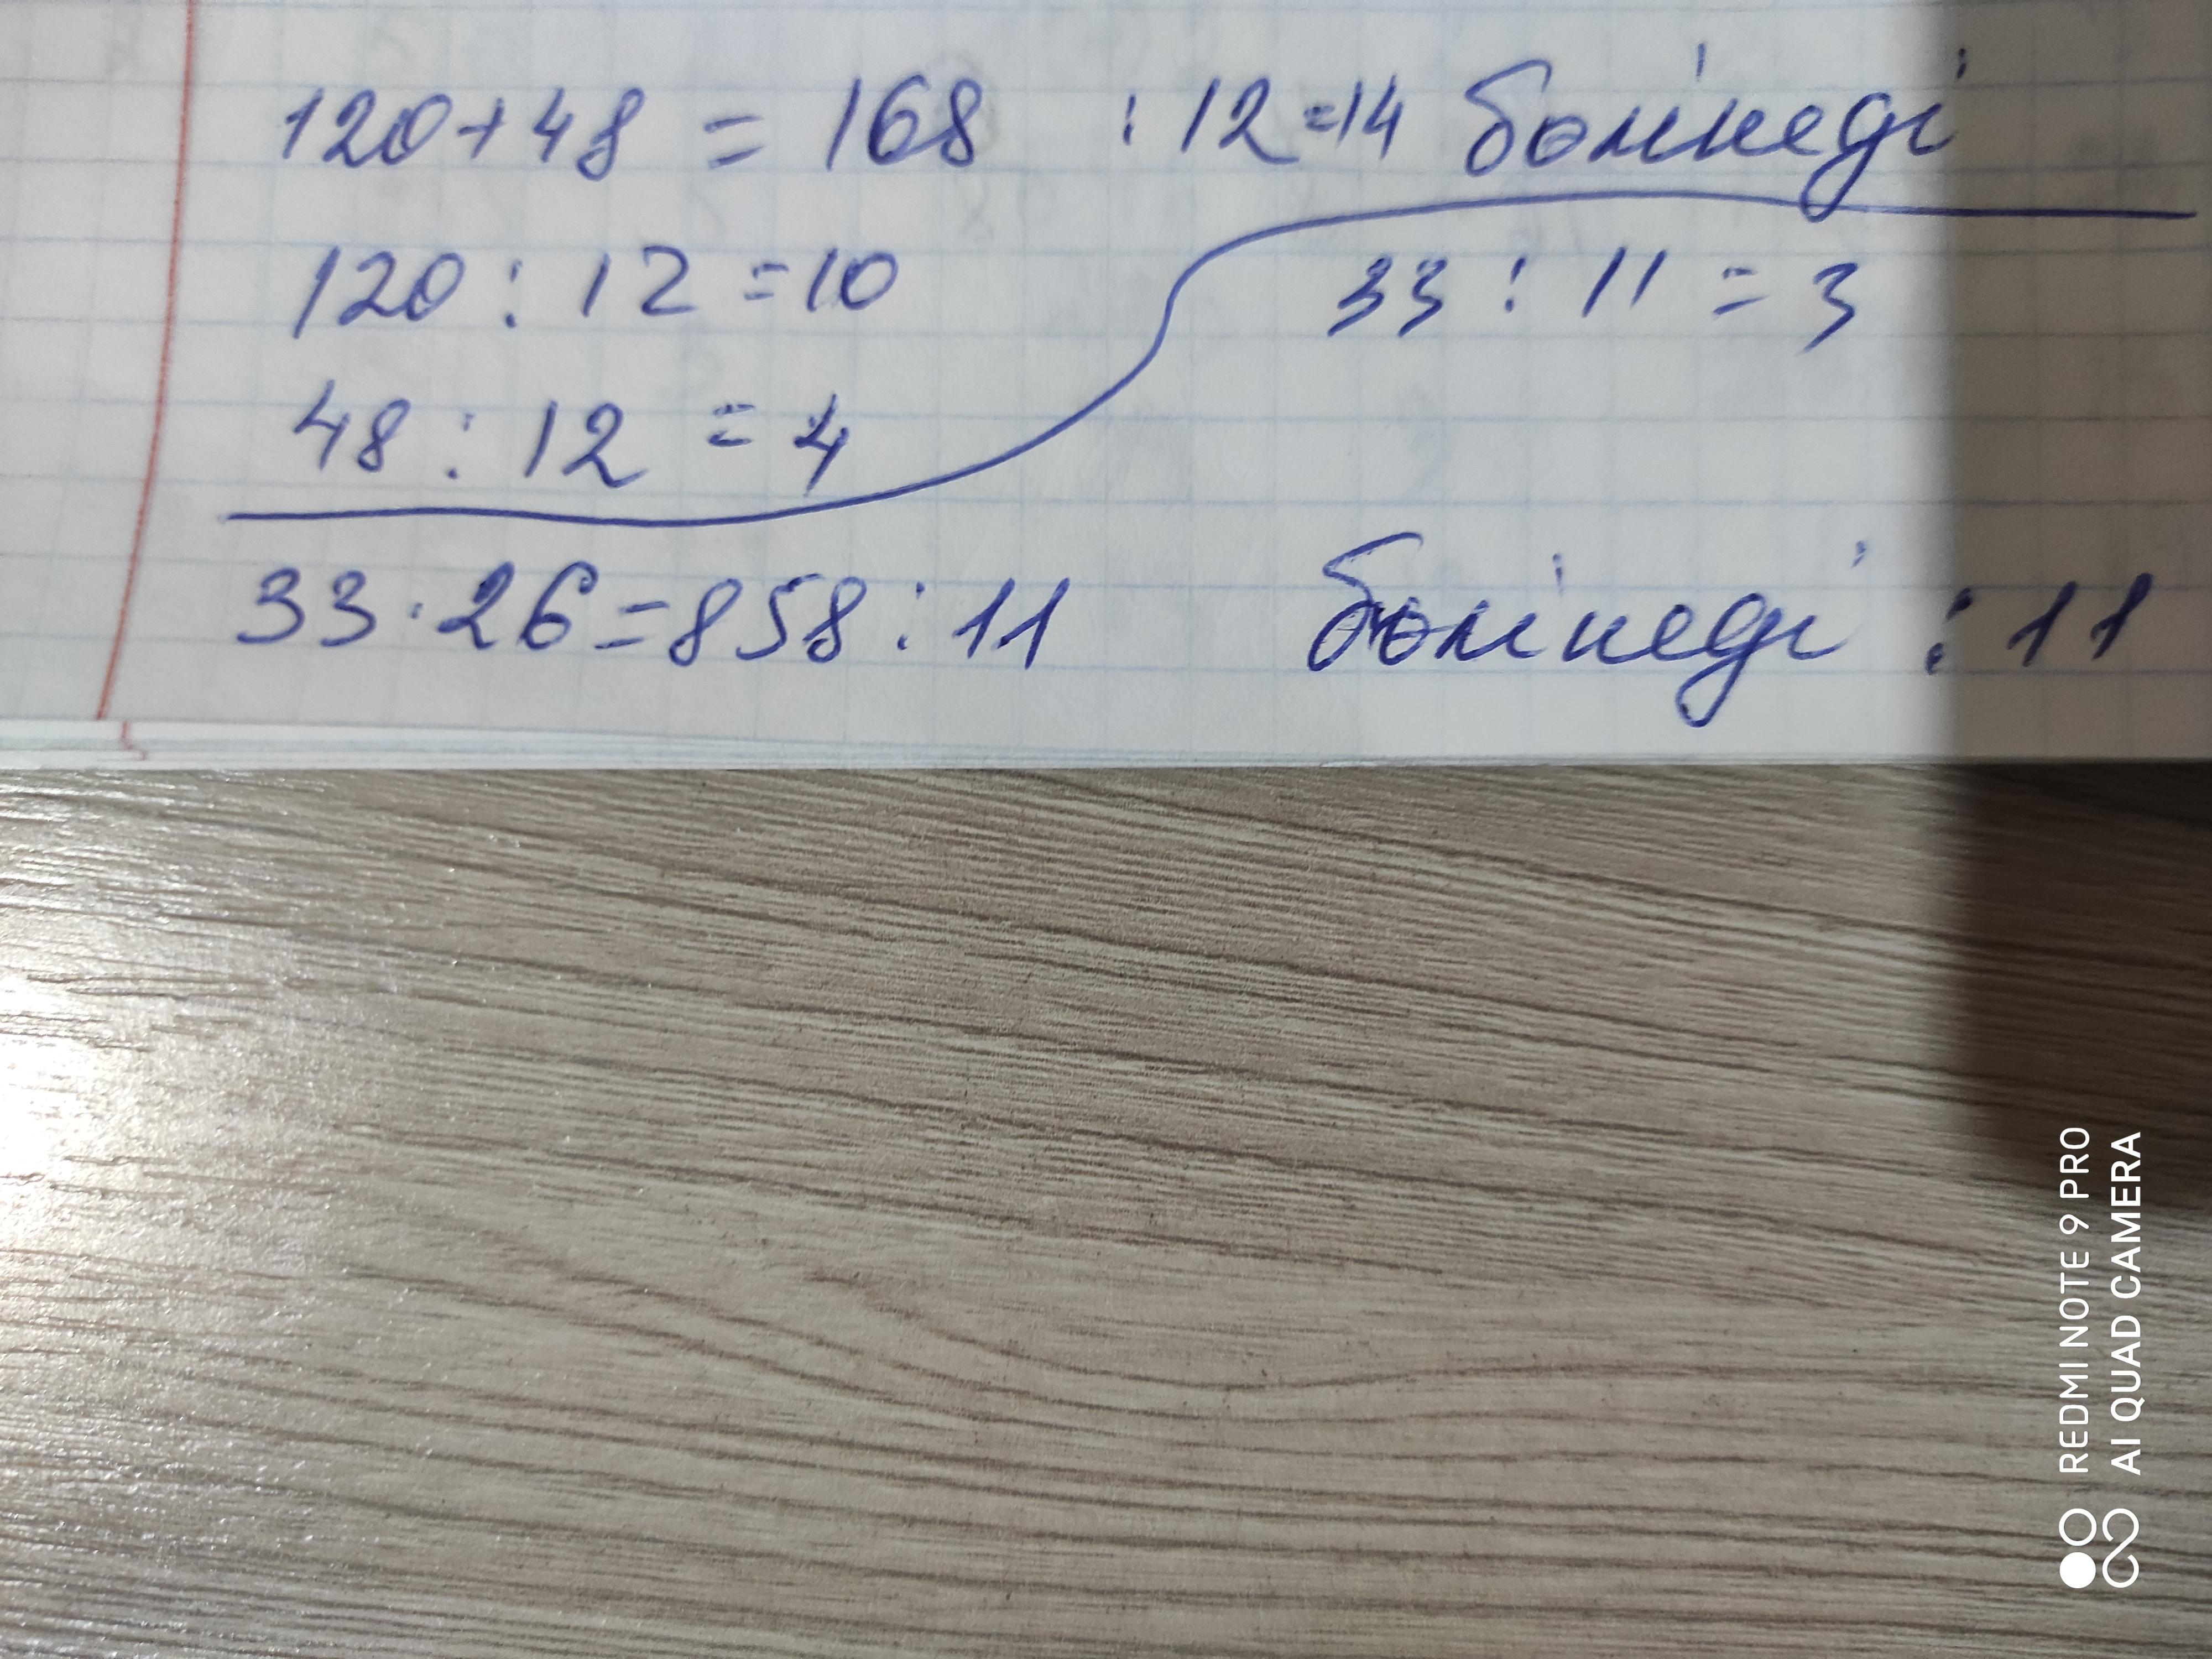 120+48 = 168 : 12=14 бөлінеді
120 : 12 =10
48 : 12 = 4
33 : 11 = 3
33·26=858:11 бөлінеді : 11
REDMI NOTE 9 PRO
AI QUAD CAMERA